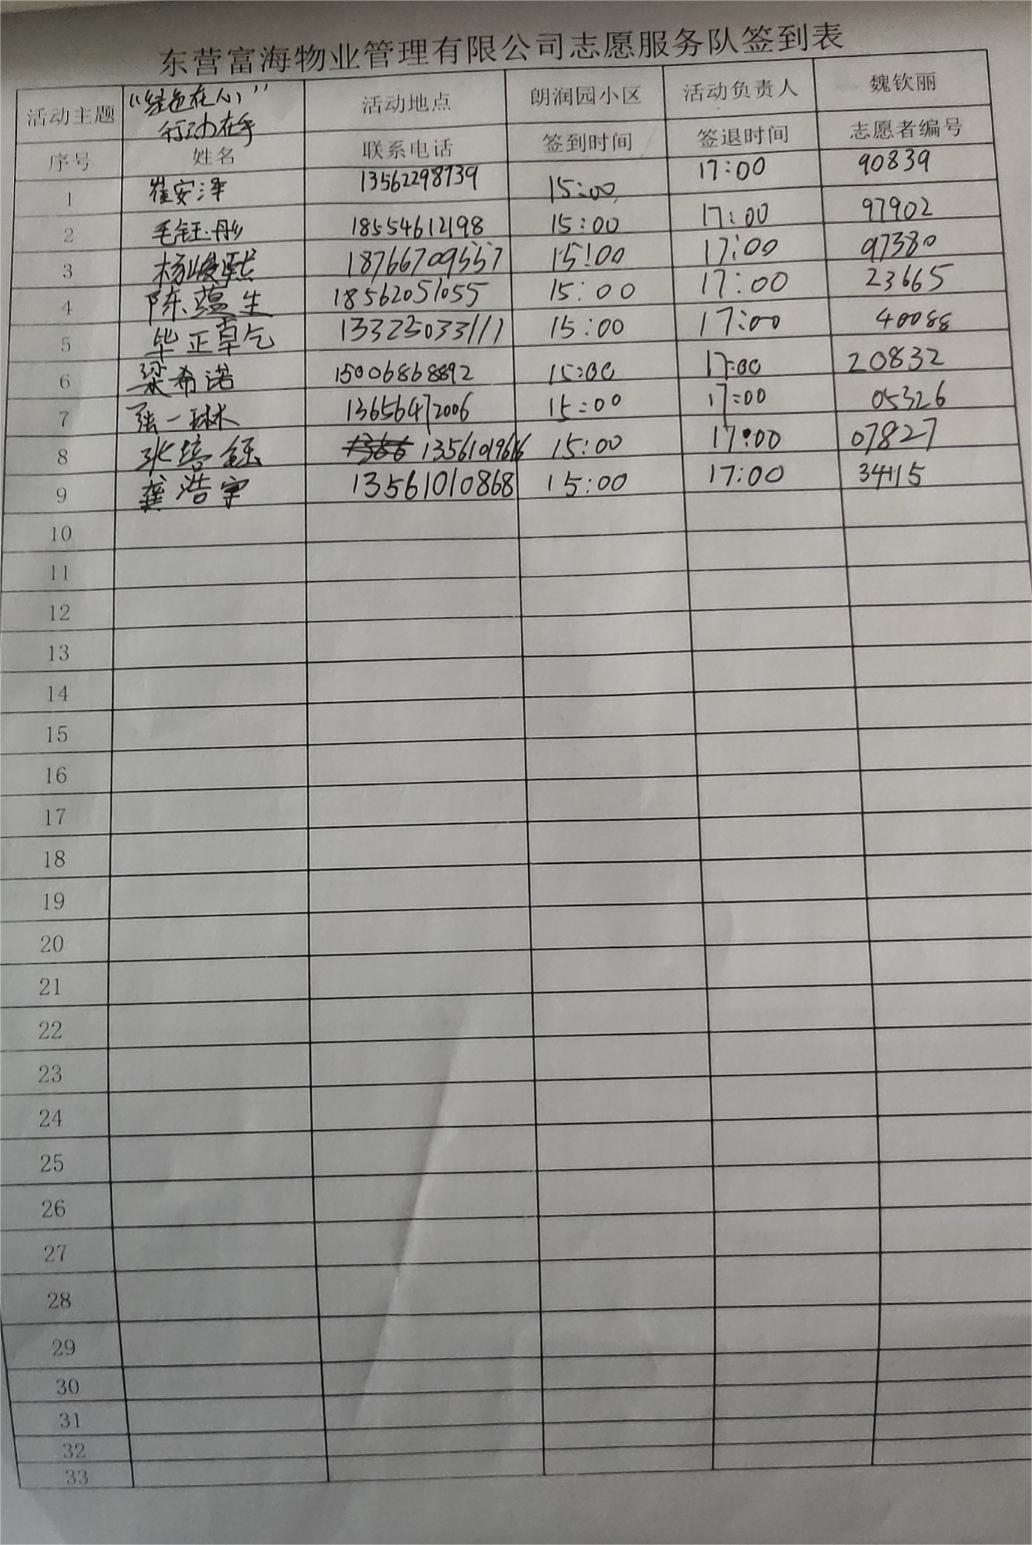 东营富海物业管理有限公司志愿服务队签到表
活动主题 “绿色在心， 行动在手” 活动地点 朗润园小区 活动负责人 魏钦丽
序号 姓名 联系电话 签到时间 签退时间 志愿者编号
1 崔安泽 13562298739 15:00 17:00 90839
2 毛钰彤 18554612198 15:00 17:00 97902
3 杨峻熙 18766709557 15:00 17:00 97380
4 陈蕴生 18562051055 15:00 17:00 23665
5 毕正卓乞 13325033111 15:00 17:00 40088
6 梁希诺 15006868892 15:00 17:00 20832
7 张一琳 13656472006 15:00 17:00 05326
8 张培钰 13561019616 15:00 17:00 07827
9 龚浩宇 13561010868 15:00 17:00 34115
10
11
12
13
14
15
16
17
18
19
20
21
22
23
24
25
26
27
28
29
30
31
32
33